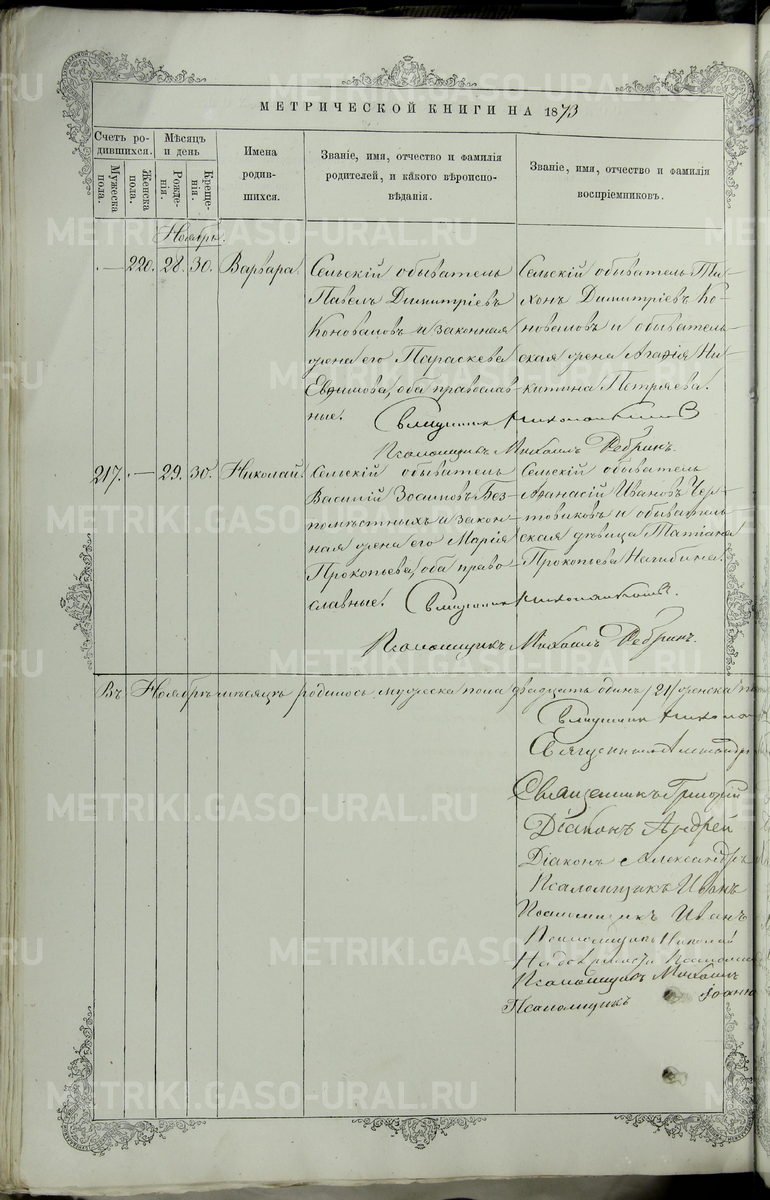 МЕТРИЧЕСКОЙ КНИГИ НА 1873
Счетъ ро-
дившихся.
Мужеска
пола.
Женска
пола.
Мѣсяцъ
и день
Рожде-
нія.
Креще-
нія.
Имена
родив-
шихся.
Званіе, имя, отчество и фамилія
родителей, и какого вѣроиспо-
вѣданія.
Званіе, имя, отчество и фамилія
воспріемниковъ.
Ноябрь.
220. 28. 30. Варвара.
Сельскій обыватель
Павелъ Димитріевъ
Коноваловъ и законная
жена его Параскева
Евфимова, оба православ-
ные.
Сельскій обыватель Ти-
хонъ Димитріевъ Ко-
новаловъ и обыватель-
ская жена Агафія Ни-
китина Петряева.
Псаломщикъ Михаилъ Ребринъ.
217. — 29. 30. Николай.
Сельскій обыватель
Василій Зосимовъ Без-
помѣстныхъ и закон-
ная жена его Марія
Прокопьева, оба право-
славные.
Сельскій обыватель
Афанасій Ивановъ Чер-
товиковъ и обыватель-
ская дѣвица Татіана
Прокопьева Нагибина.
Псаломщикъ Михаилъ Ребринъ.
Въ Ноябрѣ мѣсяцѣ родилось мужеска пола двадцать одинъ /21/ женска
Священникъ Александръ
Священникъ Григорій
Діаконъ Андрей
Діаконъ Александръ
Псаломщикъ Иванъ
Псаломщикъ Иванъ
Псаломщикъ Николай
Псаломщикъ Михаилъ
Псаломщикъ Іоаннъ
METRIKI.GASO-URAL.RU